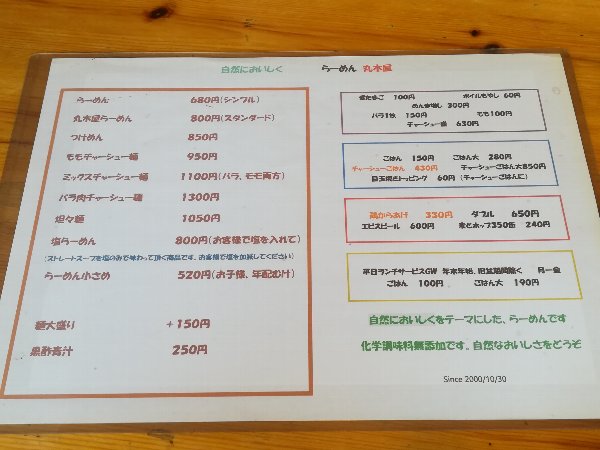 自然においしく らーめん 丸木屋
らーめん 680円(シンプル)
丸木屋らーめん 800円(スタンダード)
つけめん 850円
ももチャーシュー麺 950円
ミックスチャーシュー麺 1100円(バラ、モモ両方)
バラ肉チャーシュー麺 1300円
坦々麺 1050円
塩らーめん 800円(お客様で塩を入れて)
(ストレートスープを塩のみで味わって頂く商品です、お客様で塩を加減してください)
らーめん小さめ 520円(お子様、年配むけ)
麺大盛り +150円
黒酢青汁 250円
100円 ボイルもやし 60円
めん増し 300円
バラ1枚 150円 もも100円
チャーシュー 630円
ごはん 150円 ごはん大 280円
チャーシューごはん 430円 チャーシューごはん大850円
目玉焼きトッピング 60円 (チャーシューごはんに)
鶏からあげ 330円 ダブル 650円
エビスビール 600円 麦とホップ350缶 240円
平日ランチサービスGW 年末年始、除く 月ー金
ごはん 100円 ごはん大 190円
自然においしくをテーマにした、らーめんです
化学調味料無添加です。自然なおいしさをどうぞ
Since 2000/10/30